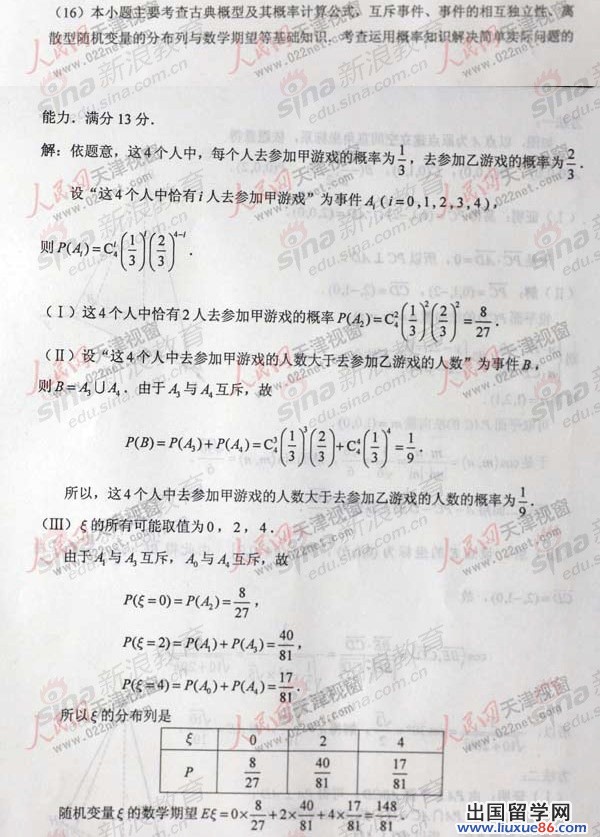 (16) 本小题主要考查古典概型及其概率计算公式、互斥事件、事件的相互独立性、离
散型随机变量的分布列与数学期望等基础知识．考查运用概率知识解决简单实际问题的
能力．满分 13 分．
解：依题意，这 4 个人中，每个人去参加甲游戏的概率为 1/3，去参加乙游戏的概率为 2/3．
设“这 4 个人中恰有 i 人去参加甲游戏”为事件 A_i ( i = 0, 1, 2, 3, 4 )，
则 P(A_i) = C_4^i (1/3)^i (2/3)^{4-i}．
(Ⅰ) 这 4 个人中恰有 2 人去参加甲游戏的概率 P(A_2) = C_4^2 (1/3)^2 (2/3)^2 = 8/27．
(Ⅱ) 设“这 4 个人中去参加甲游戏的人数大于去参加乙游戏的人数”为事件 B，
则 B = A_3 ∪ A_4．由于 A_3 与 A_4 互斥，故
P(B) = P(A_3) + P(A_4) = C_4^3 (1/3)^3 (2/3) + C_4^4 (1/3)^4 = 1/9．
所以，这 4 个人中去参加甲游戏的人数大于去参加乙游戏的人数的概率为 1/9．
(Ⅲ) ξ 的所有可能取值为 0，2，4．
由于 A_1 与 A_3 互斥，A_0 与 A_4 互斥，故
P(ξ = 0) = P(A_2) = 8/27，
P(ξ = 2) = P(A_1) + P(A_3) = 40/81，
P(ξ = 4) = P(A_0) + P(A_4) = 17/81．
所以 ξ 的分布列是
ξ 0 2 4
P 8/27 40/81 17/81
随机变量 ξ 的数学期望 Eξ = 0 × 8/27 + 2 × 40/81 + 4 × 17/81 = 148/81．
出国留学网
www.liuxue86.com
人民网 天津视窗
www.022net.com
sina 新浪教育
edu.sina.com.cn